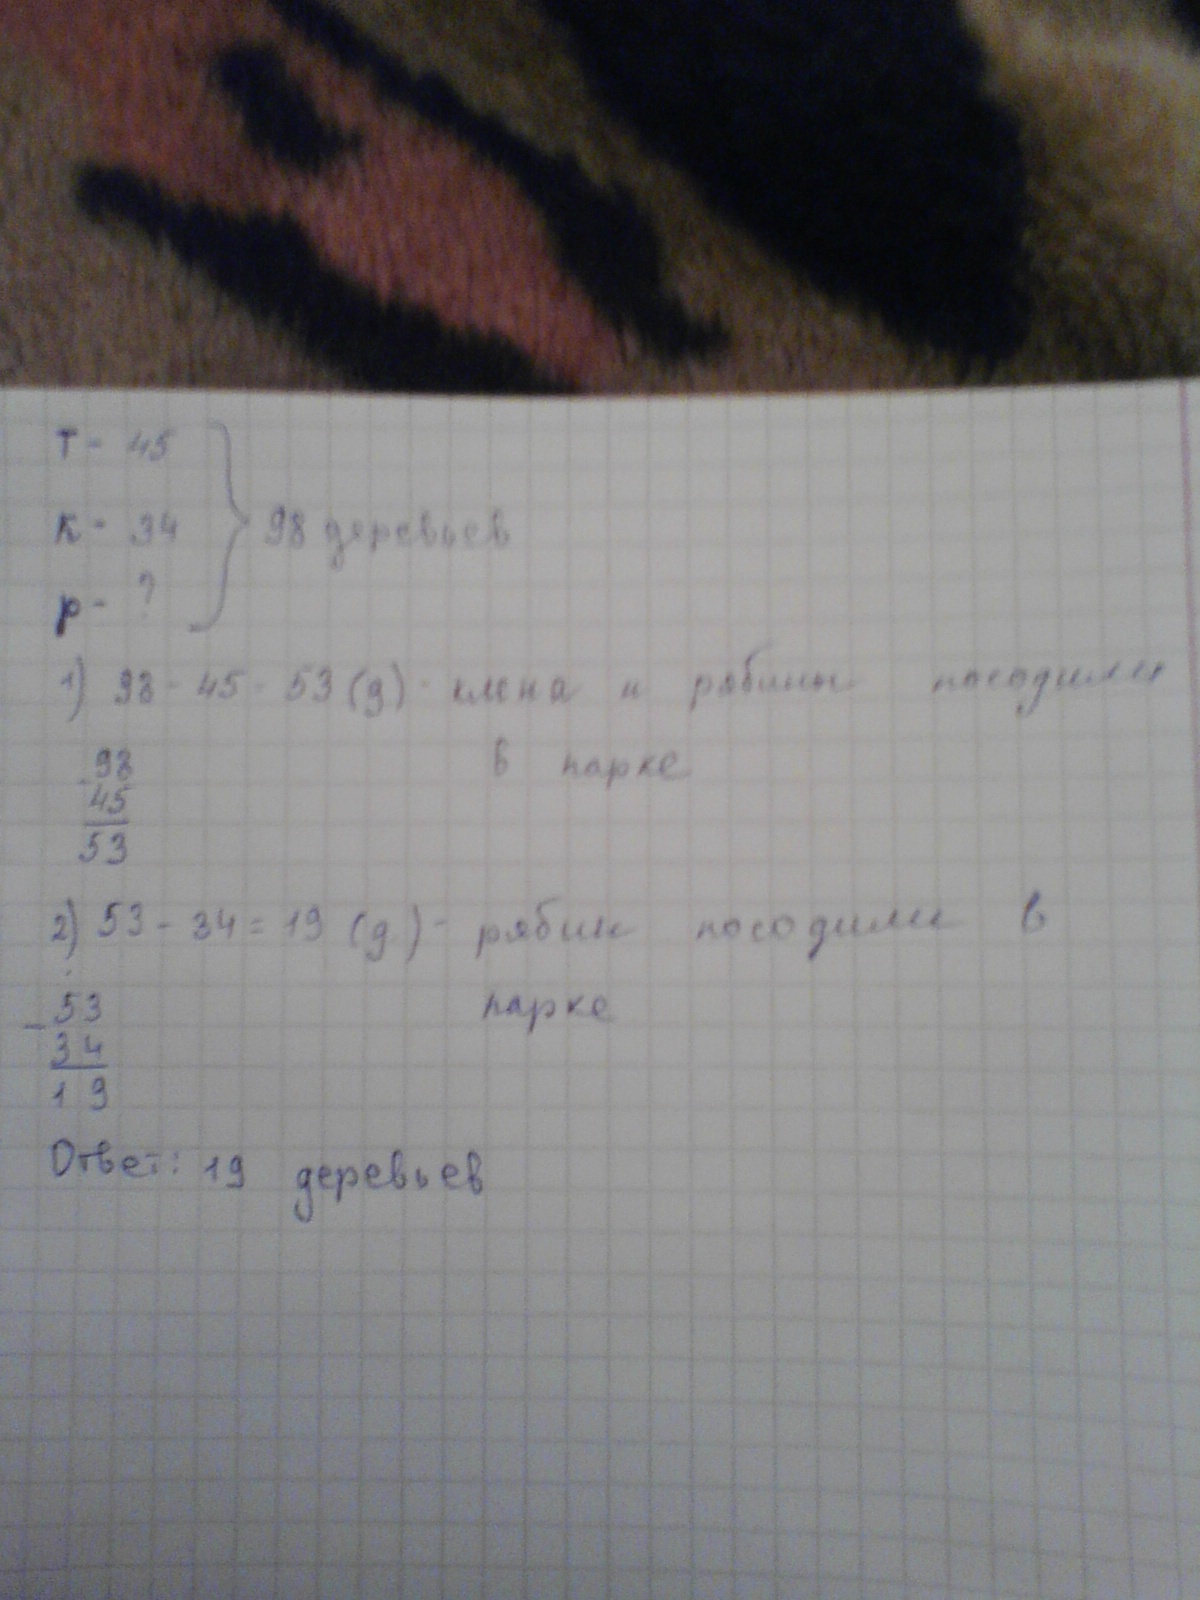 Т - 45
К - 34
р - ?
98 деревьев
1) 98 - 45 - 53 (д) - клена и рябины посодили
в парке
- 98
45
53
2) 53 - 34 = 19 (д) - рябин посодили в
парке
- 53
34
19
Ответ: 19 деревьев